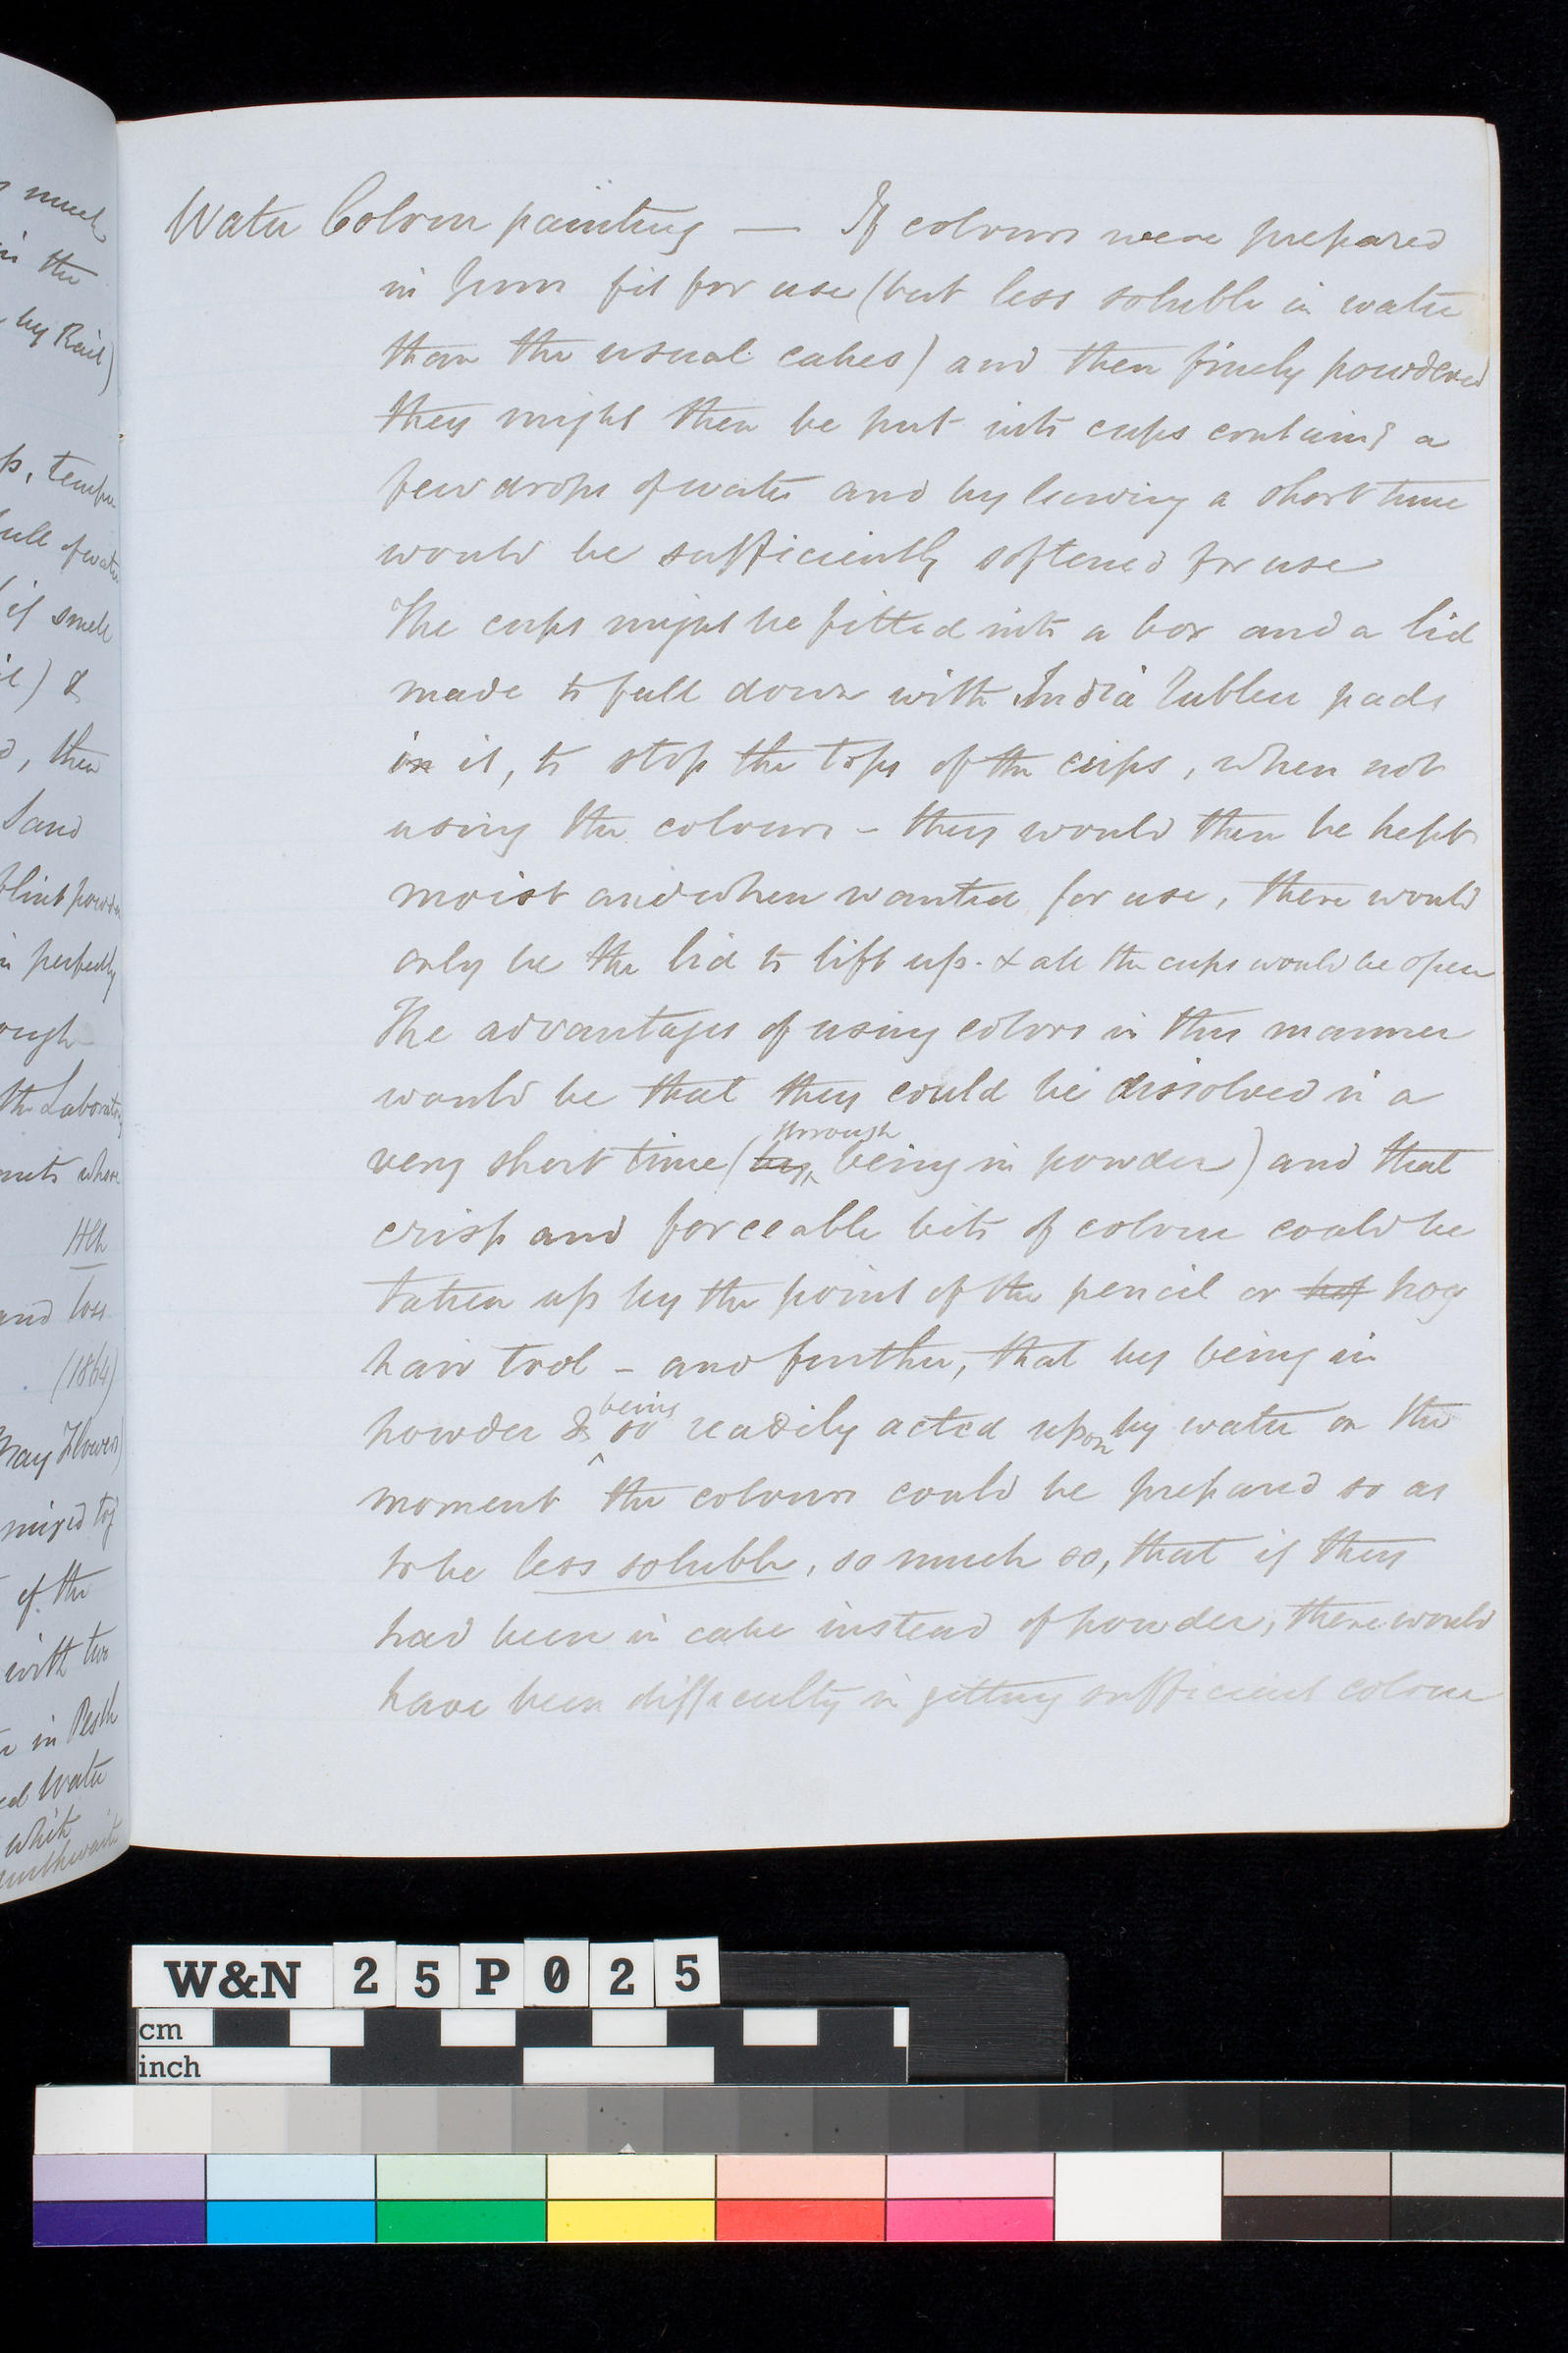 much
in the
by Rail)
temper
full of water
if smell
&
, then
Sand
flint powder
in perfectly
ough
the Laboratory
where
HCh
and loss
(1864)
May Flowers)
mixed tog
of the
with two
in Pesth
Water
white
Water Colour painting — If colours were prepared
in Gum fit for use (but less soluble in water
than the usual cakes) and then finely powdered
they might then be put into cups containg a
few drops of water and by leaving a short time
would be sufficiently softened for use
The cups might be fitted into a box and a lid
made to fall down with India Rubber pads
in it, to stop the tops of the cups, when not
using the colours – they would then be kept
moist and when wanted for use, there would
only be the lid to lift up. & all the cups would be open
The advantages of using colors in this manner
would be that they could be dissolved in a
through
very short time (by being in powder) and that
crisp and forceable bits of colour could be
taken up by the point of the pencil or hog
hair tool – and further, that by being in
being
powder & so readily acted upon by water on the
moment the colours could be prepared so as
to be less soluble, so much so, that if they
had been in cake instead of powder, there would
have been difficulty in getting sufficient colour
W&N 25P025
cm
inch